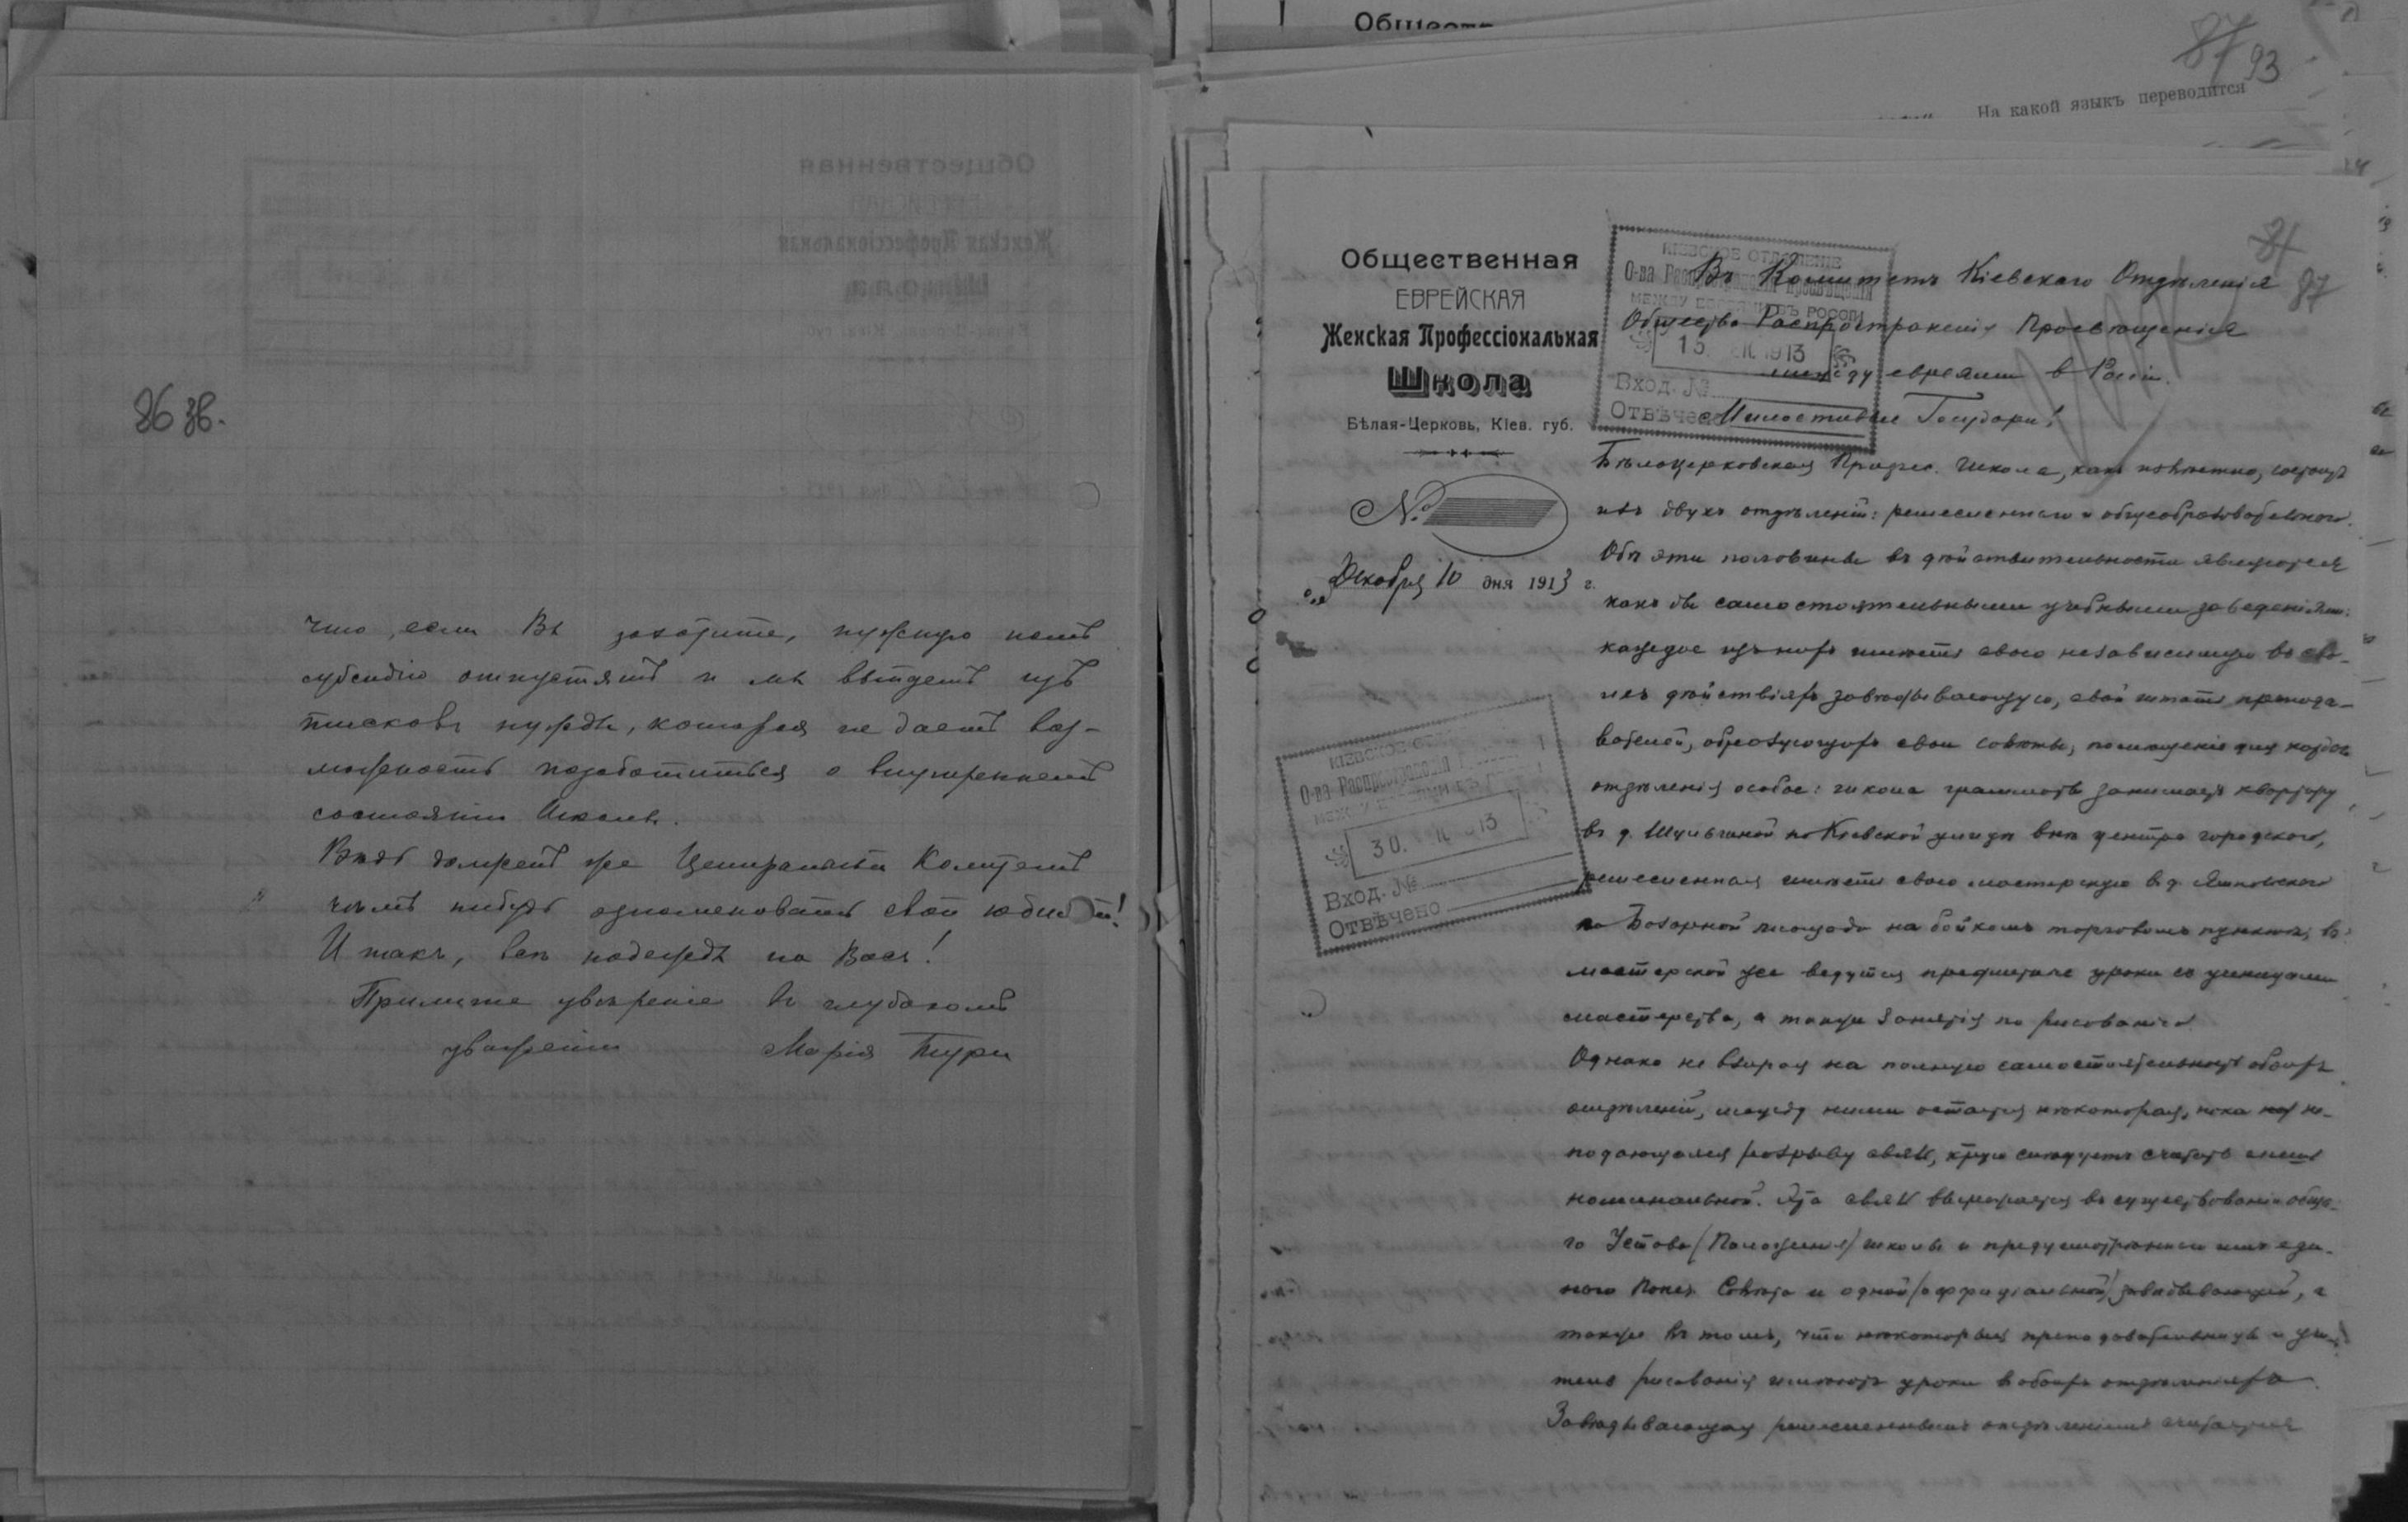 86 зв.
что, если Вы захотите, нужную намъ
субсидію отпустятъ и мы выйдемъ изъ
тисковъ нужды, которая не даетъ воз-
можность позаботиться о внутреннемъ
состояніи Школы.
Вѣдь долженъ же Центральный Комитетъ
чѣмъ нибудь ознаменовать свой юбилей!
И такъ, вся надежда на Васъ!
Примите увѣреніе въ глубокомъ
уваженіи Марія
Обществ
87 93
На какой языкъ переводится
87
Общественная
ЕВРЕЙСКАЯ
Женская Профессіональная
Школа
Бѣлая-Церковь, Кіев. губ.
№
Декабря 10 дня 1913 г.
КІЕВСКОЕ ОТДѢЛЕНІЕ
О-ва Распространенія Просвѣщенія
МЕЖДУ ЕВРЕЯМИ ВЪ РОССІИ
15. 1913
Вход. №
Отвѣчено
КІЕВСКОЕ
О-ва Распространенія
30. 13
Вход. №
Отвѣчено
Въ Комитетъ Кіевскаго Отдѣленія
Общества Распространенія Просвѣщенія
между евреями в Россіи.
Милостивые Государи!
Бѣлоцерковская Професс. Школа, какъ извѣстно, состоитъ
изъ двухъ отдѣленій: ремесленнаго и общеобразовательнаго.
Обѣ эти половины въ дѣйствительности являются
какъ бы самостоятельными учебными заведеніями:
каждое изъ нихъ имѣетъ свою независимую въ сво-
ихъ дѣйствіяхъ завѣдывающую, свой штатъ препода-
вателей, образующихъ свои совѣты, помѣщеніе для каждаго
отдѣленія особое: школа грамоты занимаетъ квартиру
въ д. Шульгиной по Кіевской улицѣ внѣ центра городского,
ремесленная имѣетъ свою мастерскую въ д.
на Базарной площади на бойкомъ торговомъ пунктѣ; въ
мастерской же ведутся предметные уроки съ ученицами
мастерства, а также занятія по рисованію.
Однако не взирая на полную самостоятельность обоихъ
отдѣленій, между ними остается нѣкоторая, пока не-
поддающаяся разрыву связь, к-рую слѣдуетъ считать лишь
номинальной. Эта связь выражается въ существованіи обща-
го Устава (Положенія) школы и предусмотреннаго имъ еди-
наго Попеч. Совѣта и одной (оффиціальной) завѣдывающей, а
также въ томъ, что нѣкоторыя преподавательницы и учи-
тель рисованія имѣютъ уроки въ обоихъ отдѣленіяхъ.
Завѣдывающая ремесленнымъ отдѣленіемъ считается